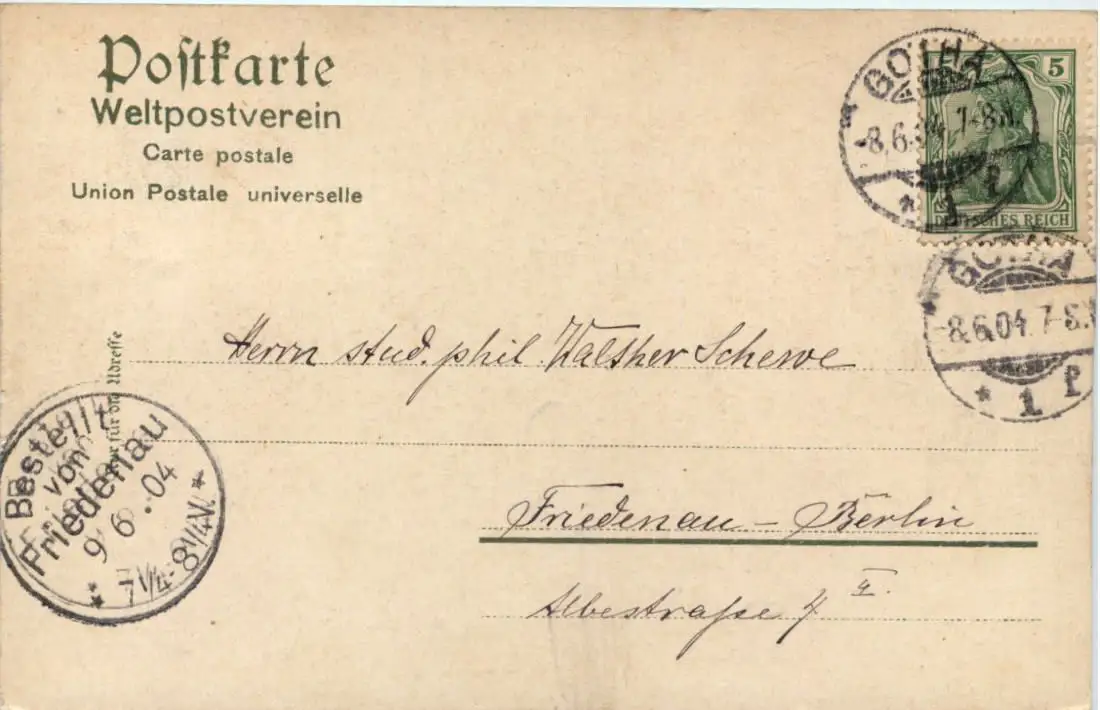 Postkarte
Weltpostverein
Carte postale
Union Postale universelle
GOTHA
5
-8.6.04. 7-8N.
* 1 l
DEUTSCHES REICH
GOTHA
-8.6.04. 7-8.N
* 1 l
Nur für die Adresse
Herrn stud. phil Walther Schewe
Friedenau - Berlin
Albestraße 4 I.
Bestellt
von
Friedenau
9 6 . 04
* 7¼-8¼V. *